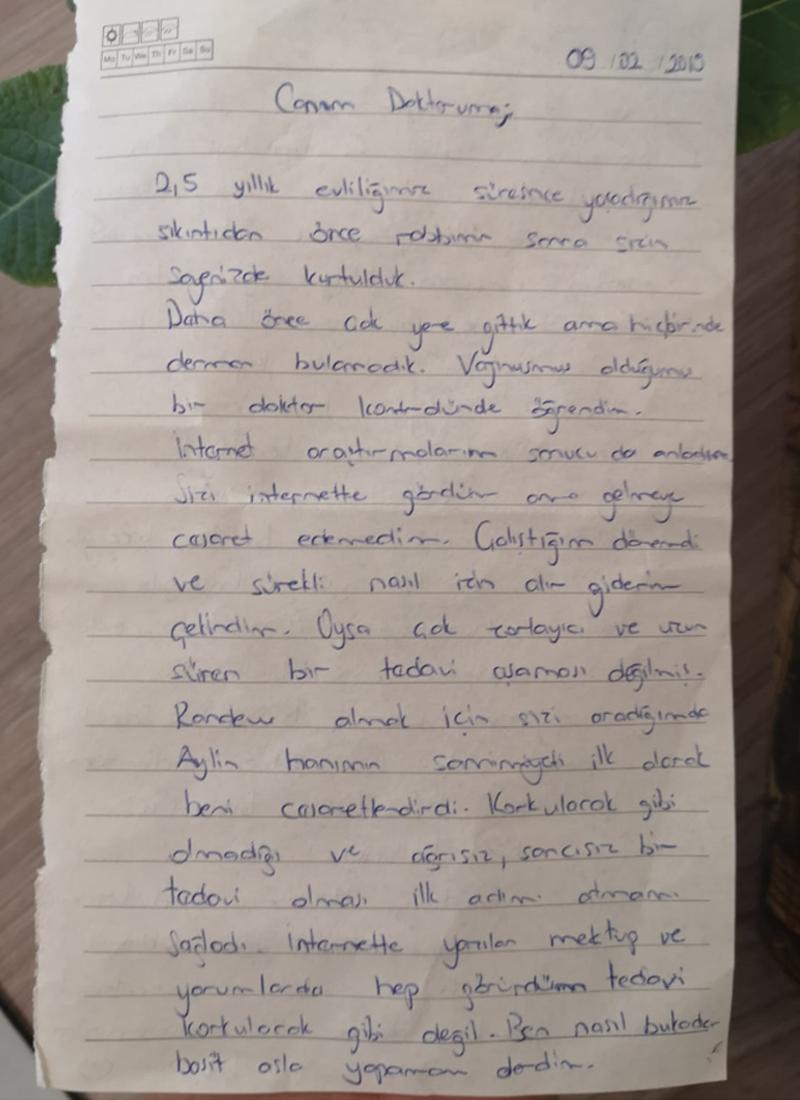 Mo Tu We Th Fr Sa Su
09 / 02 / 2019
Canım Doktorumaj
2,5 yıllık evliliğimiz süresince yaşadığımız
sıkıntıdan önce rabbimin sonra sizin
sayenizde kurtulduk.
Daha önce çok yere gittik ama hiçbirinde
derman bulamadık. Vajinusmus olduğumu
bir doktor kontrolünde öğrendim.
İnternet araştırmalarım sonucu da anladım
Sizi internette gördüm ama gelmeye
cesaret edemedim. Çalıştığım dönemdi
ve sürekli nasıl izin alır giderim
Oysa çok zorlayıcı ve uzun
süren bir tedavi aşaması değilmiş.
Randevu almak için sizi aradığımda
Aylin hanımın samimiyeti ilk olarak
beni cesaretlendirdi. Korkulacak gibi
olmadığı ve ağrısız, sancısız bir
tedavi olması ilk adımı atmamı
Sağladı. İnternette yazılan mektup ve
yorumlarda hep görürdüm tedavi
korkulacak gibi değil. Ben nasıl bukadar
basit asla yapamam derdim.